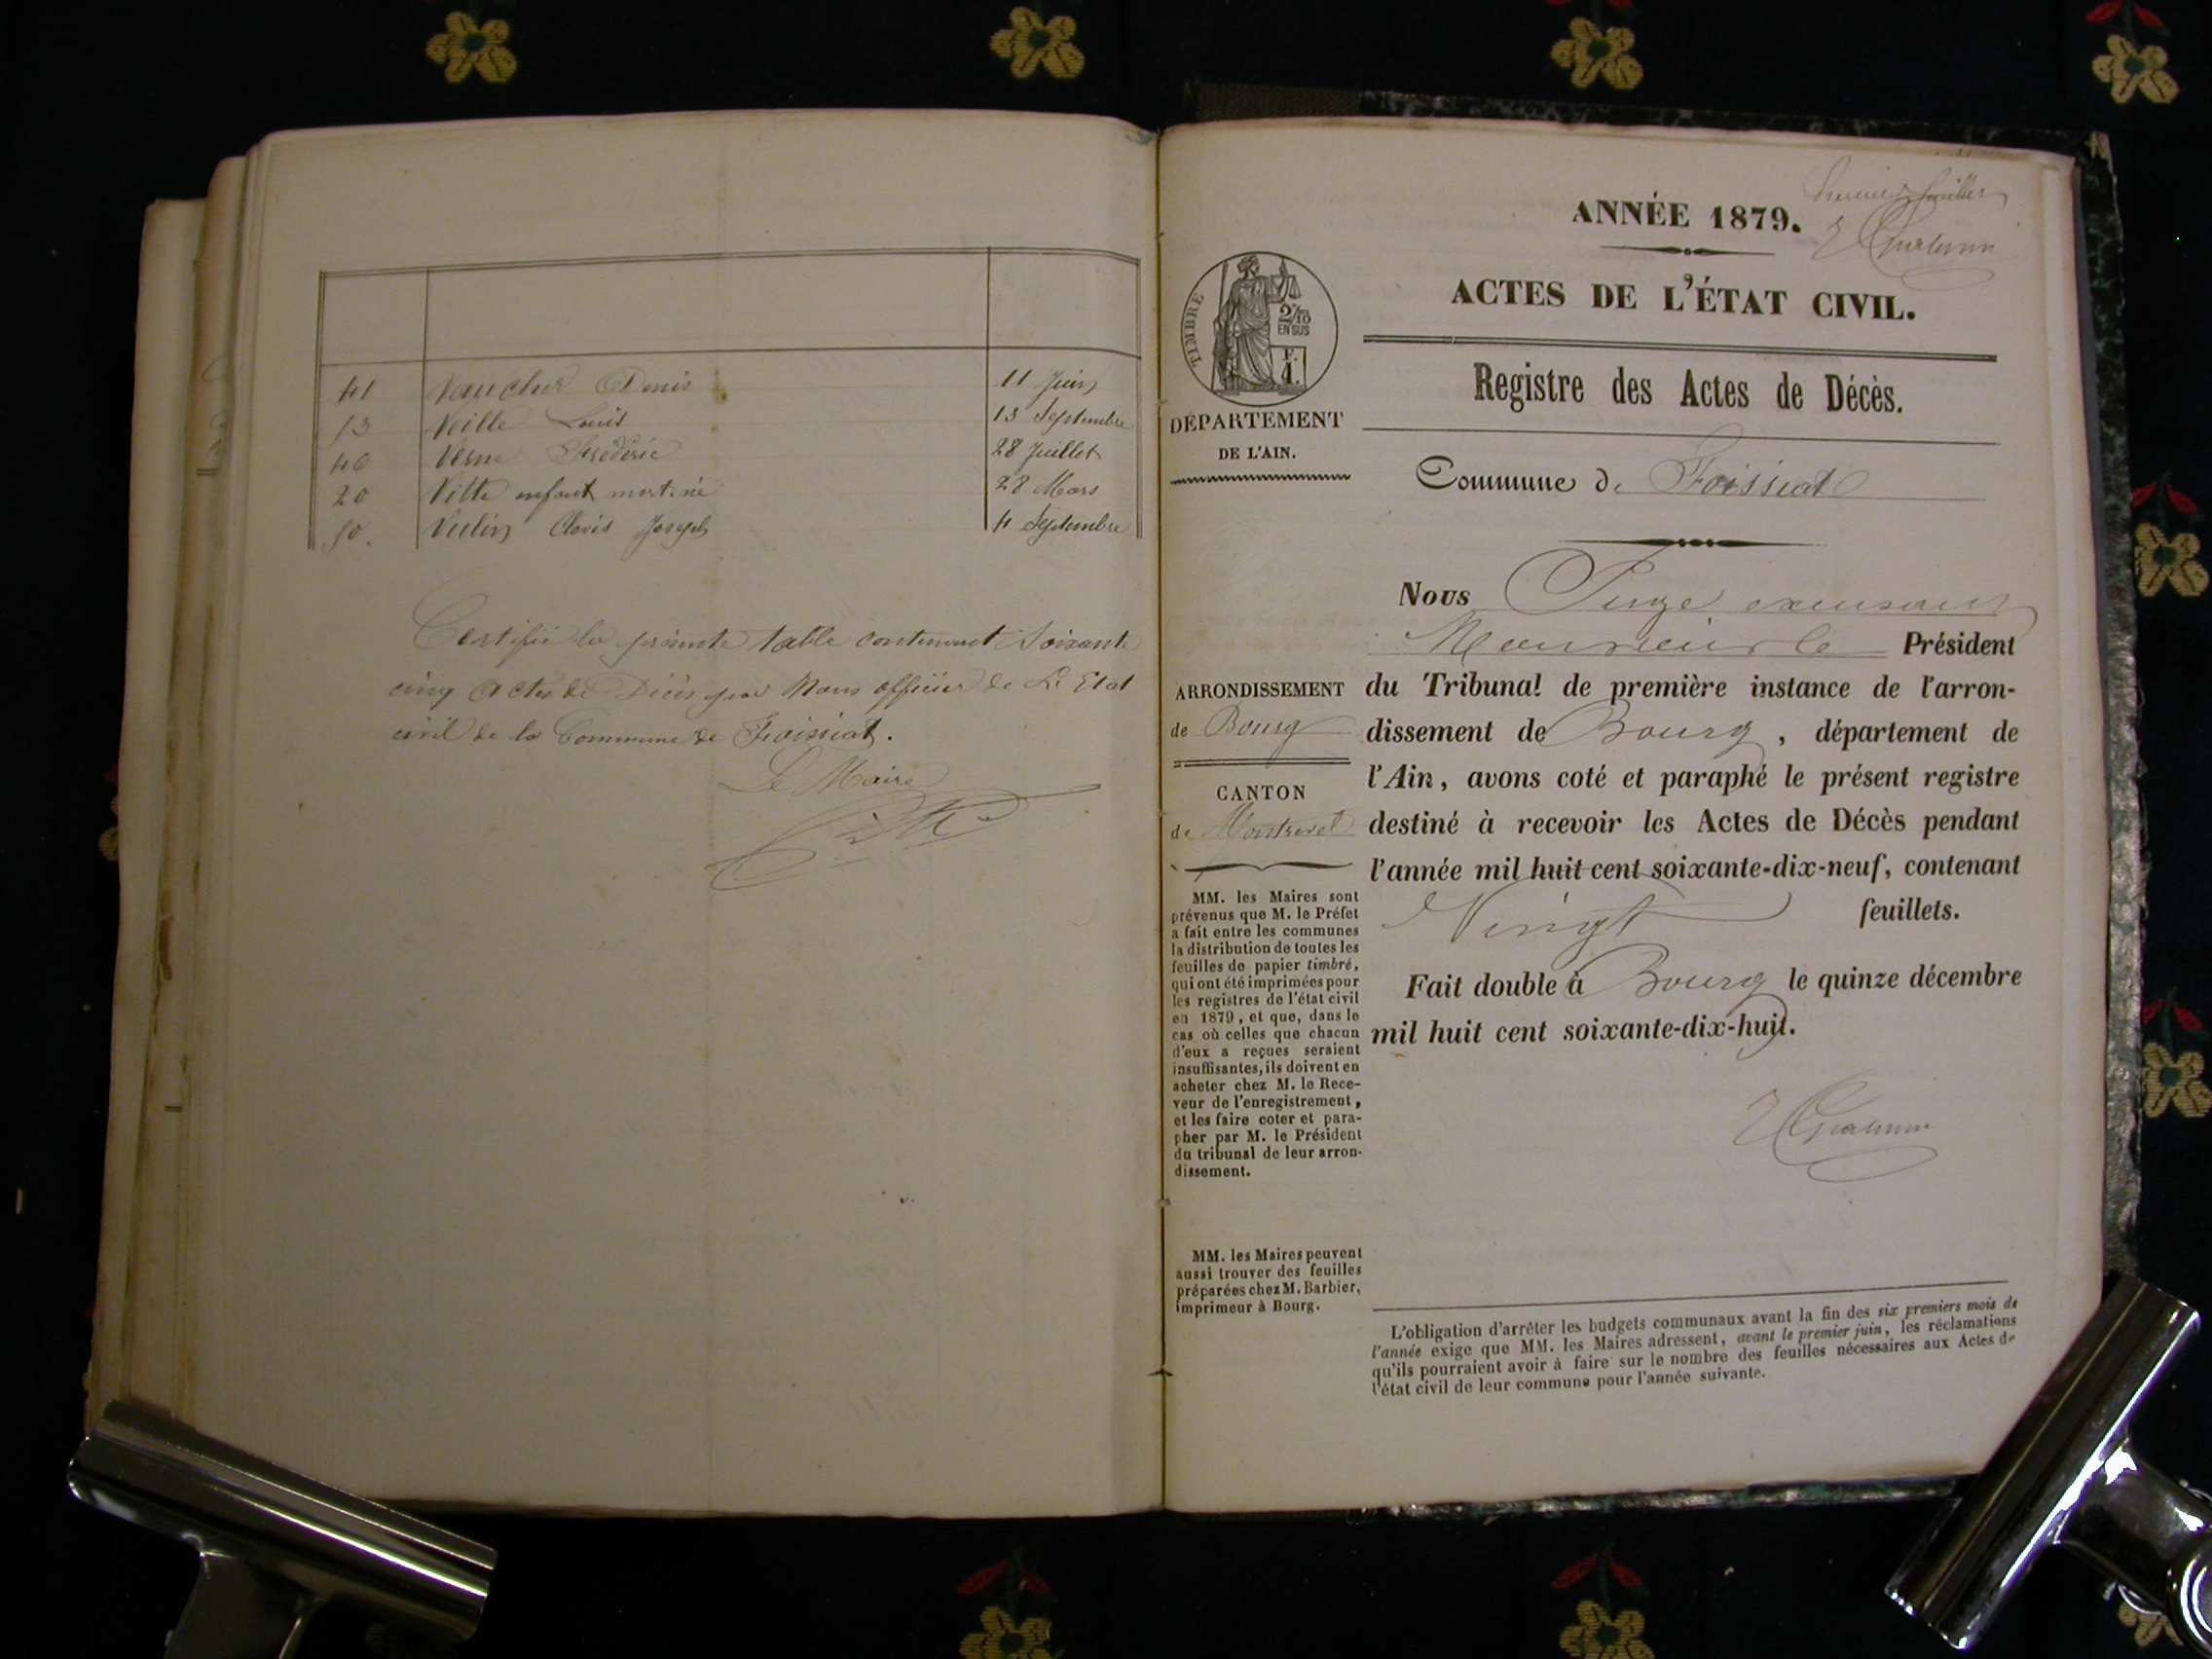 41 Vaucher Denis 11 Juin
53 Veille Louis 13 Septembre
46 Verne Frédéric 28 Juillet
20 Vitte enfant mort-né 28 Mars
50. Vulin Clovis Joseph 4 Septembre
Certifié la présente table contenant Soixante
cinq actes de Décès par Nous officier de L'Etat
civil de la Commune de Foissiat.
Le Maire
Premier feuillet
ANNÉE 1879.
ACTES DE L'ÉTAT CIVIL.
Registre des Actes de Décès.
TIMBRE
2/10
EN SUS
F.
1.
DÉPARTEMENT
DE L'AIN.
Commune de Foissiat
Nous Juge excusant
Monsieur le Président
du Tribunal de première instance de l'arron-
dissement de Bourg, département de
l'Ain, avons coté et paraphé le présent registre
destiné à recevoir les Actes de Décès pendant
l'année mil huit cent soixante-dix-neuf, contenant
Vingt feuillets.
Fait double à Bourg le quinze décembre
mil huit cent soixante-dix-huit.
ARRONDISSEMENT
de Bourg
CANTON
de Montrevel
MM. les Maires sont
prévenus que M. le Préfet
a fait entre les communes
la distribution de toutes les
feuilles de papier timbré,
qui ont été imprimées pour
les registres de l'état civil
en 1879, et que, dans le
cas où celles que chacun
d'eux a reçues seraient
insuffisantes, ils doivent en
acheter chez M. le Rece-
veur de l'enregistrement,
et les faire coter et para-
pher par M. le Président
du tribunal de leur arron-
dissement.
MM. les Maires peuvent
aussi trouver des feuilles
préparées chez M. Barbier,
imprimeur à Bourg.
L'obligation d'arrêter les budgets communaux avant la fin des six premiers mois de
l'année exige que MM. les Maires adressent, avant le premier juin, les réclamations
qu'ils pourraient avoir à faire sur le nombre des feuilles nécessaires aux Actes de
l'état civil de leur commune pour l'année suivante.